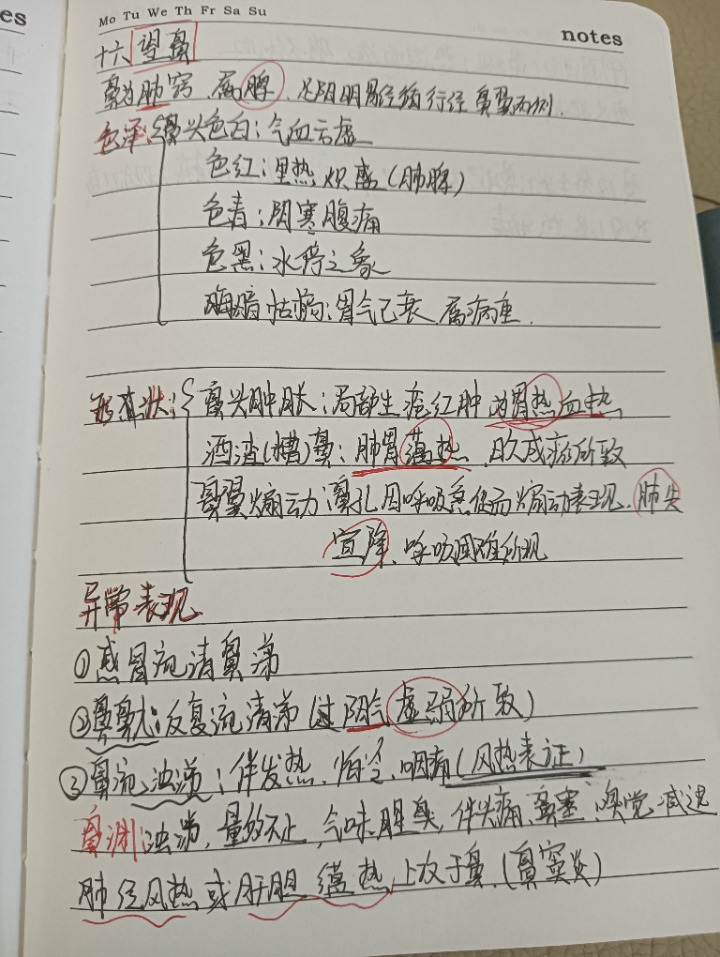 es
Mo Tu We Th Fr Sa Su
notes
十六 望鼻
鼻为肺窍、属脾、足阳明胃经循行经鼻两侧.
色泽: 鼻头色白: 气血亏虚
色红: 里热炽盛(肺脾)
色青: 阴寒腹痛
色黑: 水停之象
晦暗枯槁: 胃气已衰 属病重.
形态状: 鼻头肿胀: 局部生疮红肿 为胃热血热
酒渣(糟)鼻: 肺胃蕴热、日久成瘀所致
鼻翼煽动 鼻孔因呼吸急促而煽动表现. 肺失
宣降、呼吸困难所现
异常表现
①感冒流清鼻涕
②鼻鼽: 反复流清涕(过 阳气虚弱所致)
③鼻流浊涕: 伴发热、怕冷、咽痛(风热表证)
鼻渊: 浊涕, 量多不止, 气味腥臭, 伴头痛、鼻塞、嗅觉减退
肺经风热或肝胆蕴热, 上攻于鼻. (鼻窦炎)